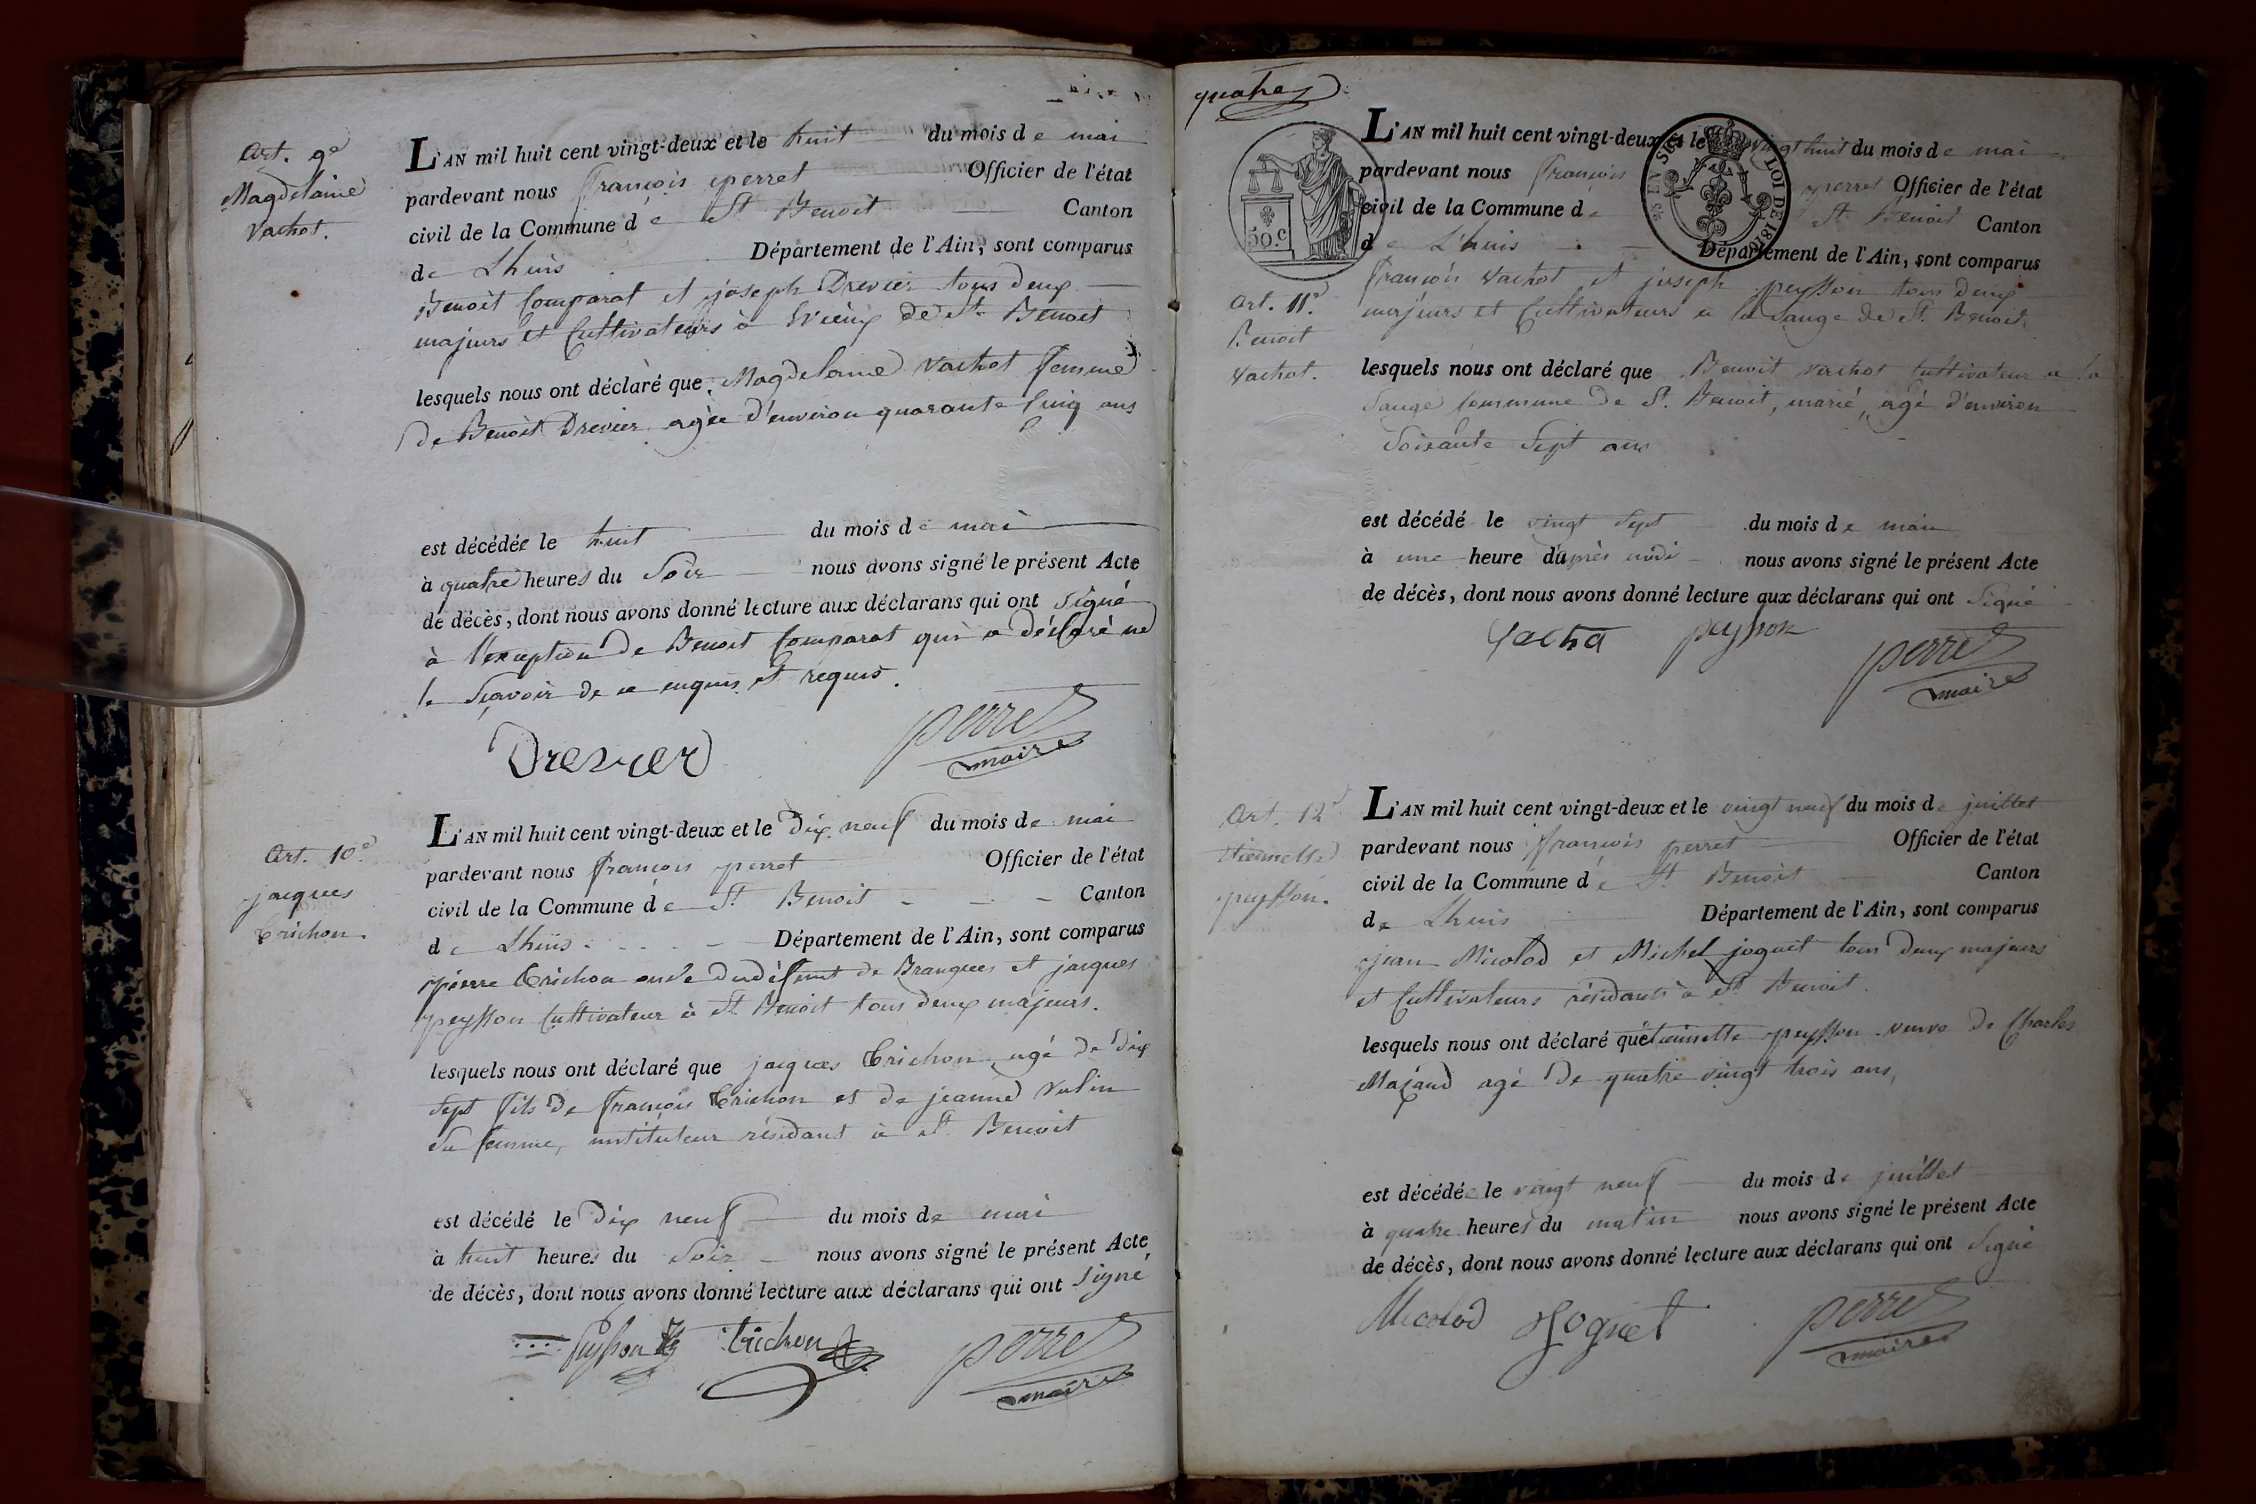 Art. 9e
Magdelaine
Vachot.
L'AN mil huit cent vingt-deux et le huit du mois de mai
pardevant nous françois perret Officier de l'état
civil de la Commune de St Benoit Canton
de Lhuis Département de l'Ain, sont comparus
Benoit Comparat et joseph Drevier tous deux
majeurs et Cultivateurs à Evieux de St Benoit
lesquels nous ont déclaré que Magdelaine Vachot femme
de Benoit Drevier agée d'environ quarante Cinq ans
est décédée le huit du mois de mai
à quatre heures du Soir nous avons signé le présent Acte
de décès, dont nous avons donné lecture aux déclarans qui ont signé
à l'exception de Benoit Comparat qui a déclaré ne
le Sçavoir de ce enquis et requis.
Drevier perret
maire
Art. 10e
jacques
Trichon.
L'AN mil huit cent vingt-deux et le dix neuf du mois de mai
pardevant nous françois perret Officier de l'état
civil de la Commune de St Benoit Canton
de Lhuis Département de l'Ain, sont comparus
pierre Trichon oncle dudéfunt de Brangues et jacques
peysson Cultivateur à St Benoit tous deux majeurs.
lesquels nous ont déclaré que jacques Trichon, agé de dix
sept fils de françois Trichon et de jeanne Vulin
sa femme, instituteur résidant à St Benoit
est décédé le dix neuf du mois de mai
à huit heures du Soir nous avons signé le présent Acte
de décès, dont nous avons donné lecture aux déclarans qui ont Signé
Peysson trichon perret
maire
quatre
50.c
LOI DE 1816
L'AN mil huit cent vingt-deux et le vingt huit du mois de mai
pardevant nous françois perret Officier de l'état
civil de la Commune de St Benoit Canton
de L'huis Département de l'Ain, sont comparus
Art. 11e
Benoit
Vachot.
françois Vachot et joseph peysson tous deux
majeurs et Cultivateurs a la Sauge de St Benoit
lesquels nous ont déclaré que Benoit Vachot Cultivateur a la
Sauge Commune de St. Benoit, marié, agé d'environ
Soixante Sept ans
est décédé le vingt Sept du mois de mai
à une heure d'après midi nous avons signé le présent Acte
de décès, dont nous avons donné lecture aux déclarans qui ont Signé
peysson perret
maire
Art. 12e
peysson.
L'AN mil huit cent vingt-deux et le vingt neuf du mois de juillet
pardevant nous françois perret Officier de l'état
civil de la Commune de St Benoit Canton
de Lhuis Département de l'Ain, sont comparus
jean Micolod et Michel joguet tous deux majeurs
et Cultivateurs résidants à St Benoit.
lesquels nous ont déclaré que peysson veuve de Charles
agé de quatre vingt trois ans,
est décédée le vingt neuf du mois de juillet
à quatre heures du matin nous avons signé le présent Acte
de décès, dont nous avons donné lecture aux déclarans qui ont Signé
Micolod Joguet perret
maire